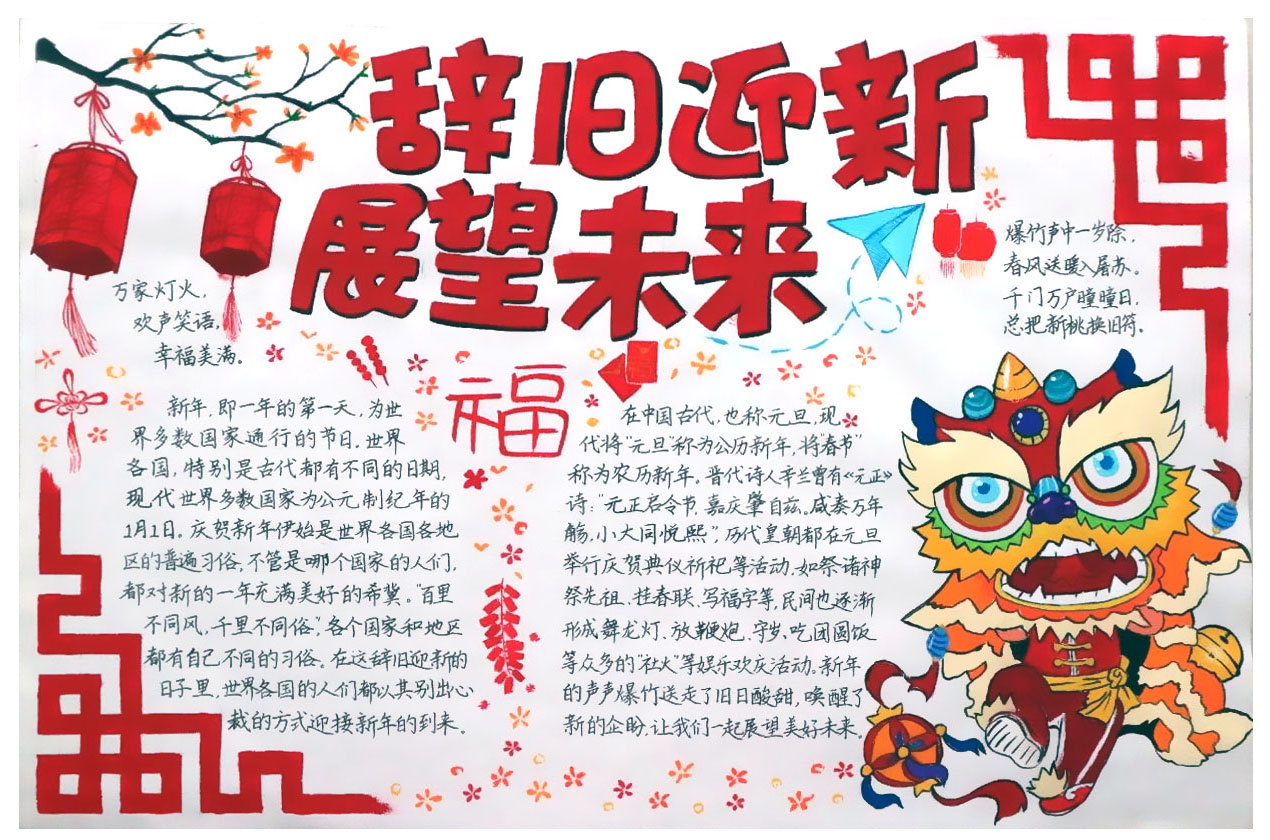 辞旧迎新
展望未来
万家灯火,
欢声笑语,
幸福美满。
爆竹声中一岁除,
春风送暖入屠苏。
千门万户曈曈日,
总把新桃换旧符。
福
新年,即一年的第一天,为世
界多数国家通行的节日。世界
各国,特别是古代都有不同的日期,
现代世界多数国家为公元制纪年的
1月1日。庆贺新年伊始是世界各国各地
区的普遍习俗,不管是哪个国家的人们,
都对新的一年充满美好的希冀。"百里
不同风,千里不同俗",各个国家和地区
都有自己不同的习俗。在这辞旧迎新的
日子里,世界各国的人们都以其别出心
裁的方式迎接新年的到来。
在中国古代,也称元旦,现
代将"元旦"称为公历新年,将"春节"
称为农历新年。晋代诗人辛兰曾有《元正》
诗:"元正启令节,嘉庆肇自兹。咸奏万年
觞,小大同悦熙"。历代皇朝都在元旦
举行庆贺典仪祈祀等活动,如祭诸神
祭先祖、挂春联、写福字等,民间也逐渐
形成舞龙灯、放鞭炮、守岁、吃团圆饭
等众多的"社火"等娱乐欢庆活动。新年
的声声爆竹送走了旧日酸甜,唤醒了
新的企盼,让我们一起展望美好未来。